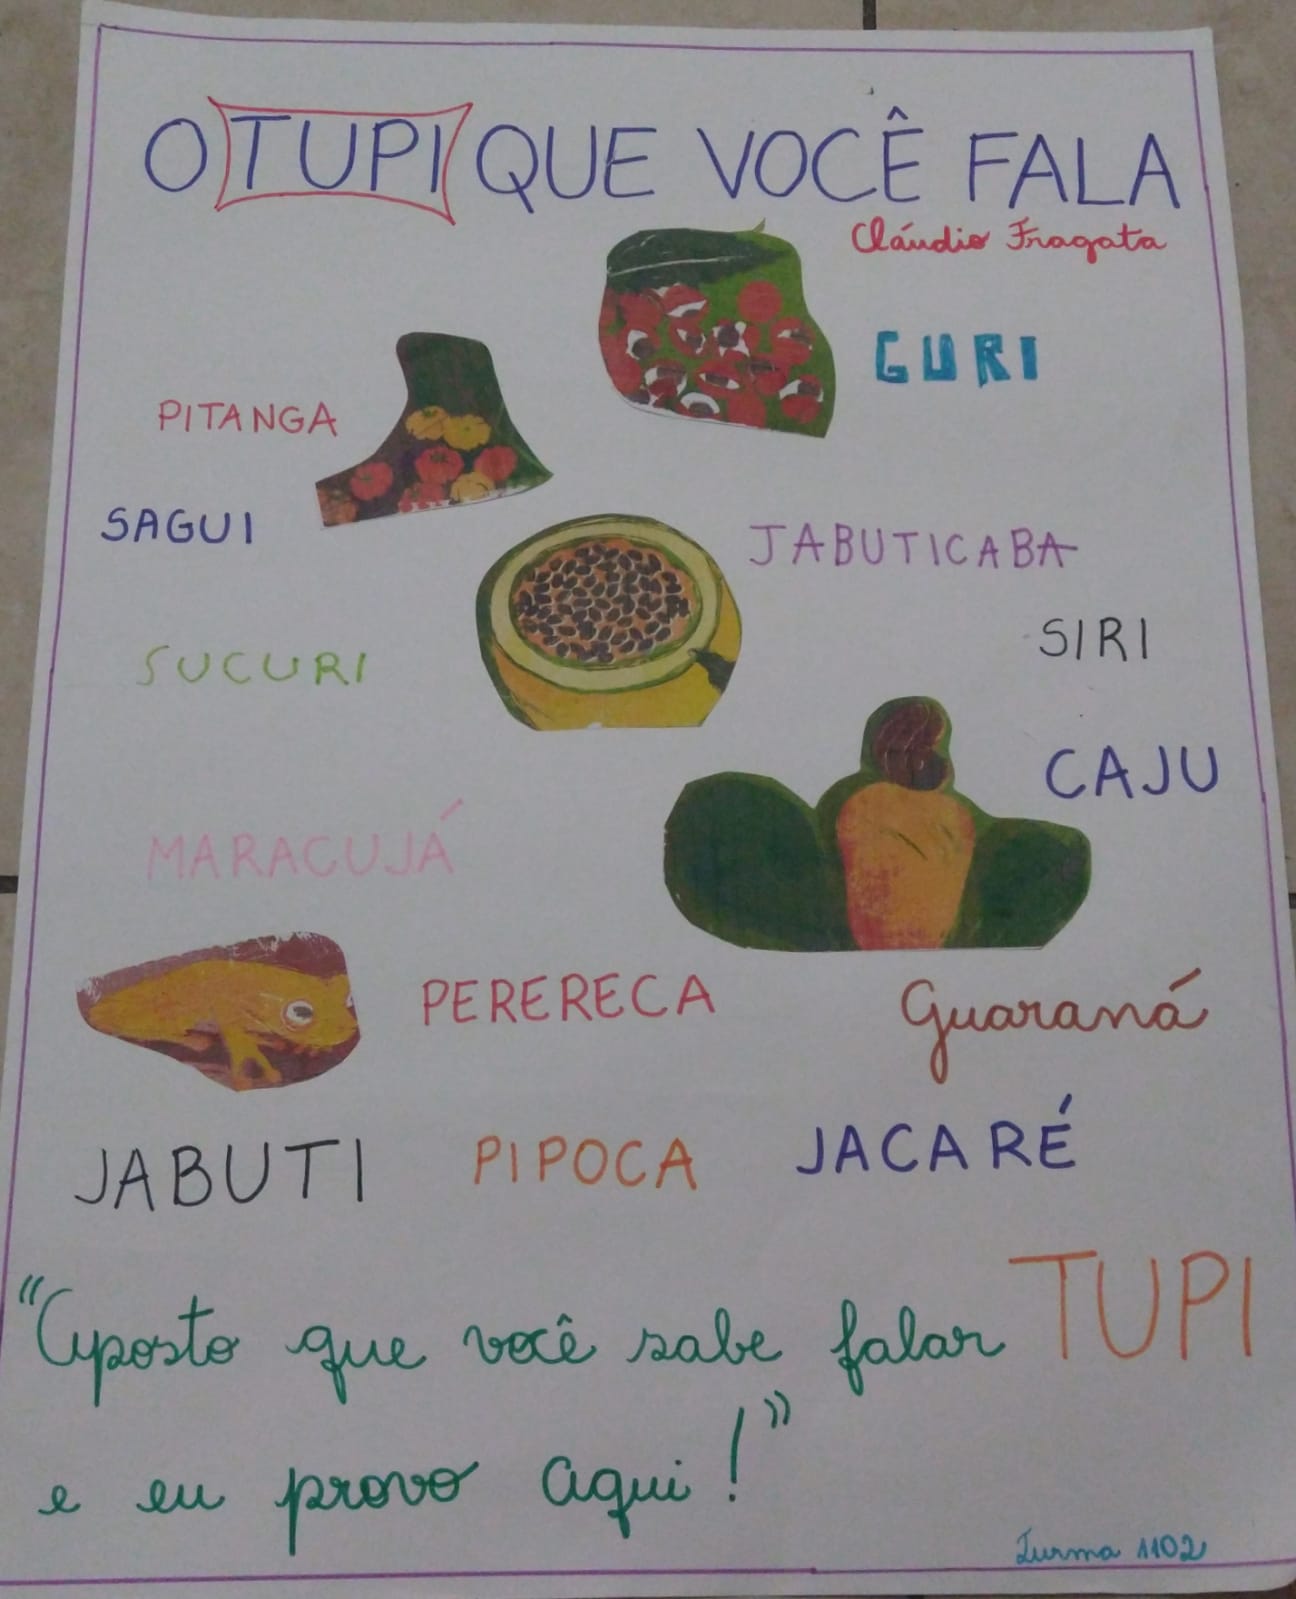 O TUPI QUE VOCÊ FALA
Cláudio Fragata
GURI
PITANGA
SAGUI
JABUTICABA
SIRI
SUCURI
CAJU
MARACUJÁ
PERERECA
Guaraná
JABUTI
PIPOCA
JACARÉ
"Aposto que você sabe falar TUPI
e eu provo aqui!"
Turma 1102